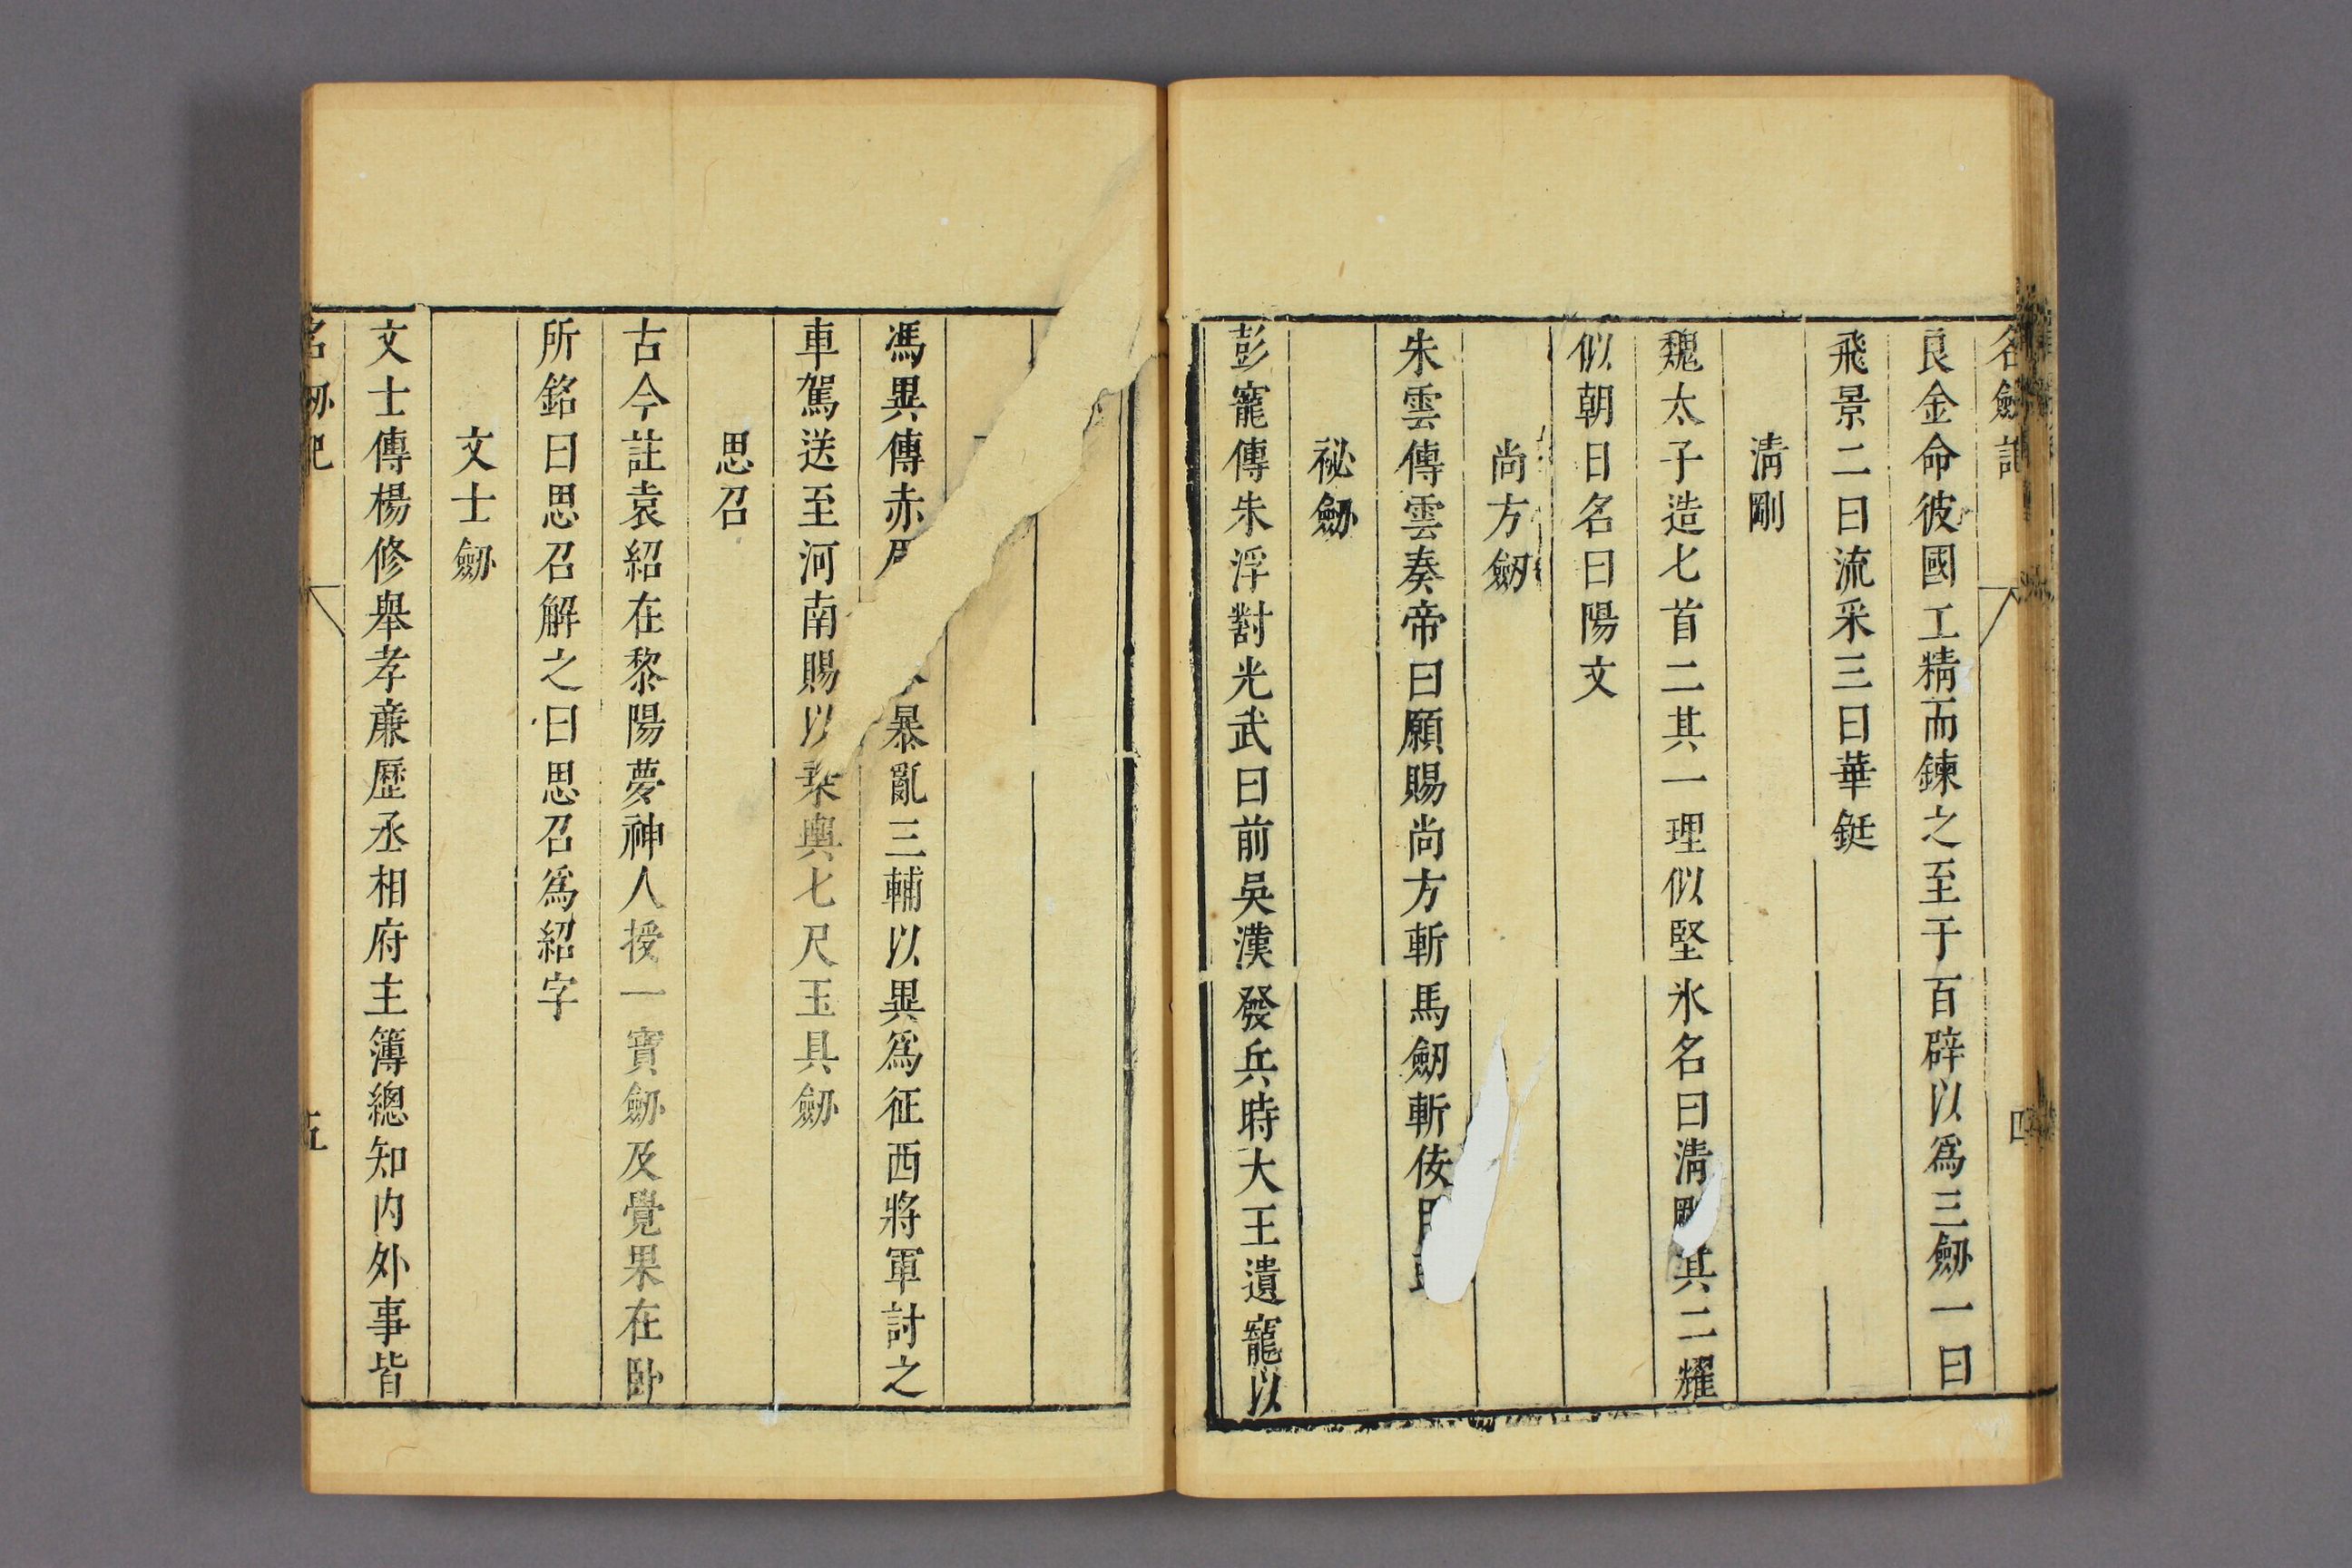 名劒記
四
良金命彼國工精而鍊之至于百辟以爲三劒一曰
飛景二曰流采三曰華鋌
清剛
魏太子造七首二其一理似堅氷名曰清剛其二耀
似朝日名曰陽文
尚方劒
朱雲傳雲奏帝曰願賜尚方斬馬劒斬佞
祕劒
彭寵傳朱浮對光武曰前吳漢發兵時大王遺寵以
馮異傳赤
暴亂三輔以異爲征西將軍討之
車駕送至河南賜以乗輿七尺玉具劒
思召
古今註袁紹在黎陽夢神人授一寶劒及覺果在卧
所銘曰思召解之曰思召爲紹字
文士劒
文士傳楊修舉孝亷歷丞相府主簿總知内外事皆
名劒記
五